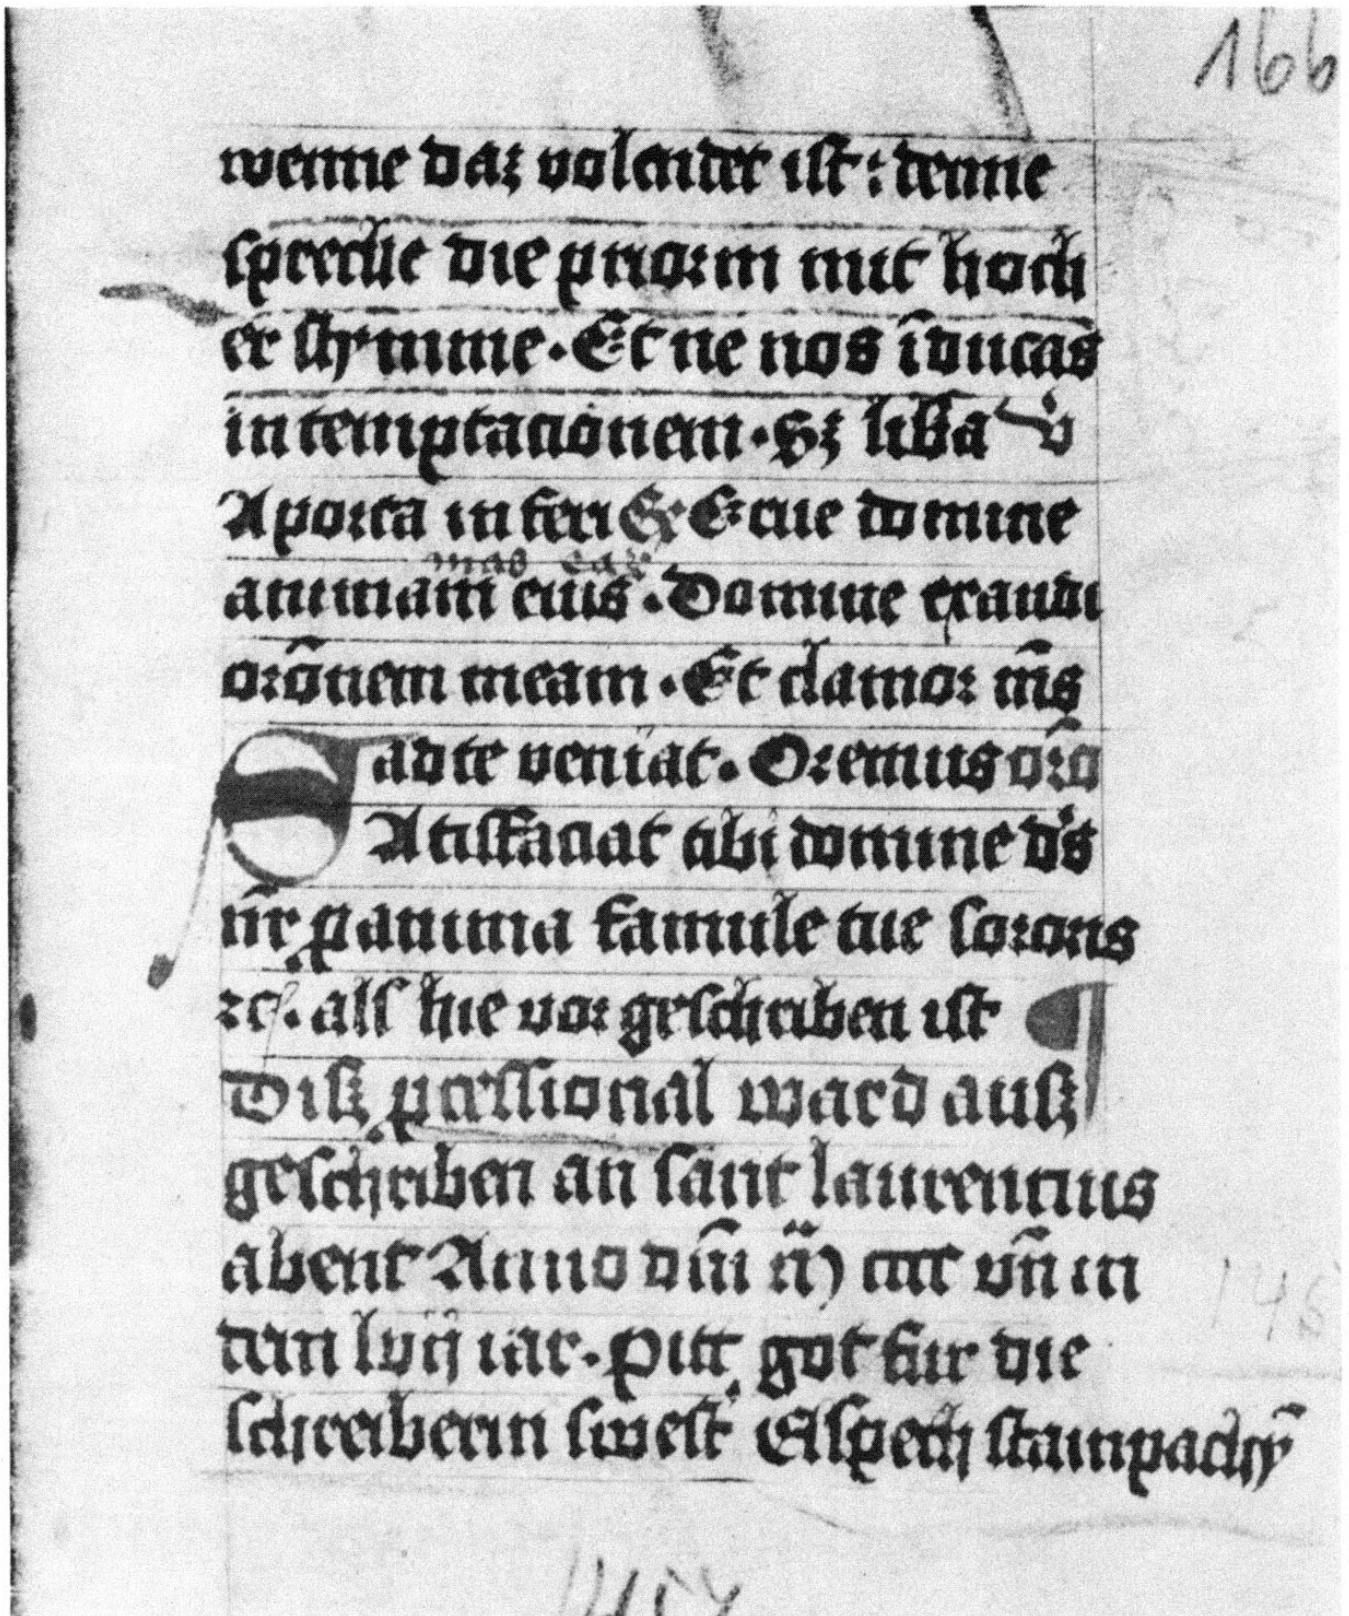 166
wenne daz volendet ist : denne
spreche die priorin mit hoch
er stymme · Et ne nos īducas
in temptacionem · Sz liba
A porta inferi Er Erue domine
mas eaꝝ
animam eius · Domine exaudi
orōnem meam · Et clamor m̄s
ad te veniat · Oremus orō
SAtisfaciat tibi domine d's
nr̄ ꝑ anima famule tue sororis
ꝛc̄ · alß hie vor geschriben ist
Diß ꝓcessional ward auß
geschriben an sant laurencius
abent Anno dm̄ m̄ cccc vn̄ in
dem lvij iar · Pitt got fur die
schreiberin swest' Elspeth stainpachȳ
146
1457